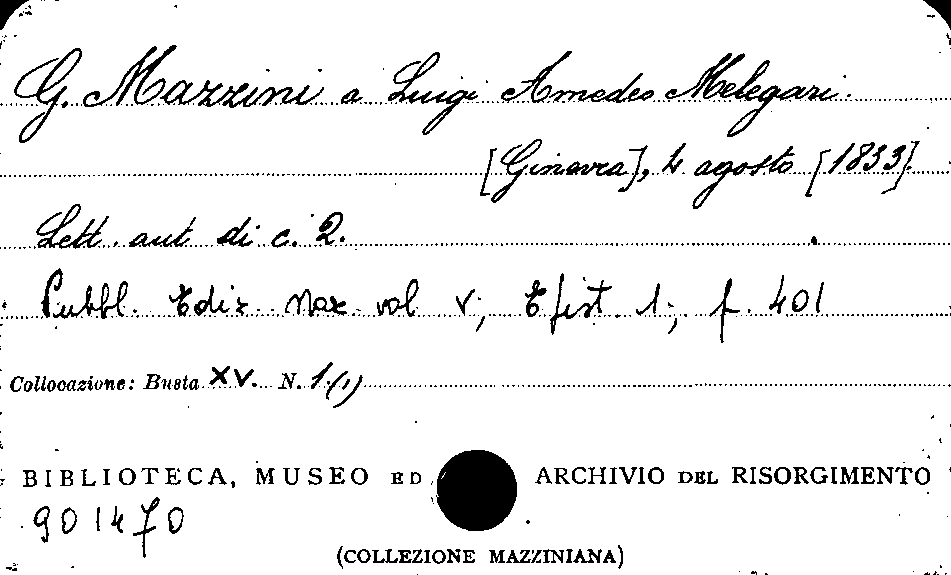 G. Mazzini a Luigi Amedeo Melegari.
[Ginevra], 4 agosto [1833].
Lett. aut. di c. 2.
Pubbl. Ediz. Naz. vol. V; Epist. 1; p. 401
Collocazione: Busta XV. N. 1.(1)
BIBLIOTECA, MUSEO ED ARCHIVIO DEL RISORGIMENTO
901470
(COLLEZIONE MAZZINIANA)